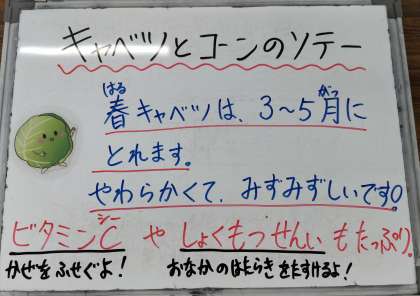 キャベツとコーンのソテー
春キャベツは、3~5月に
はる がつ
とれます。
やわらかくて、みずみずしいです。
ビタミンC や しょくもつせんい もたっぷり。
シー
かぜをふせぐよ! おなかのはたらきをたすけるよ!